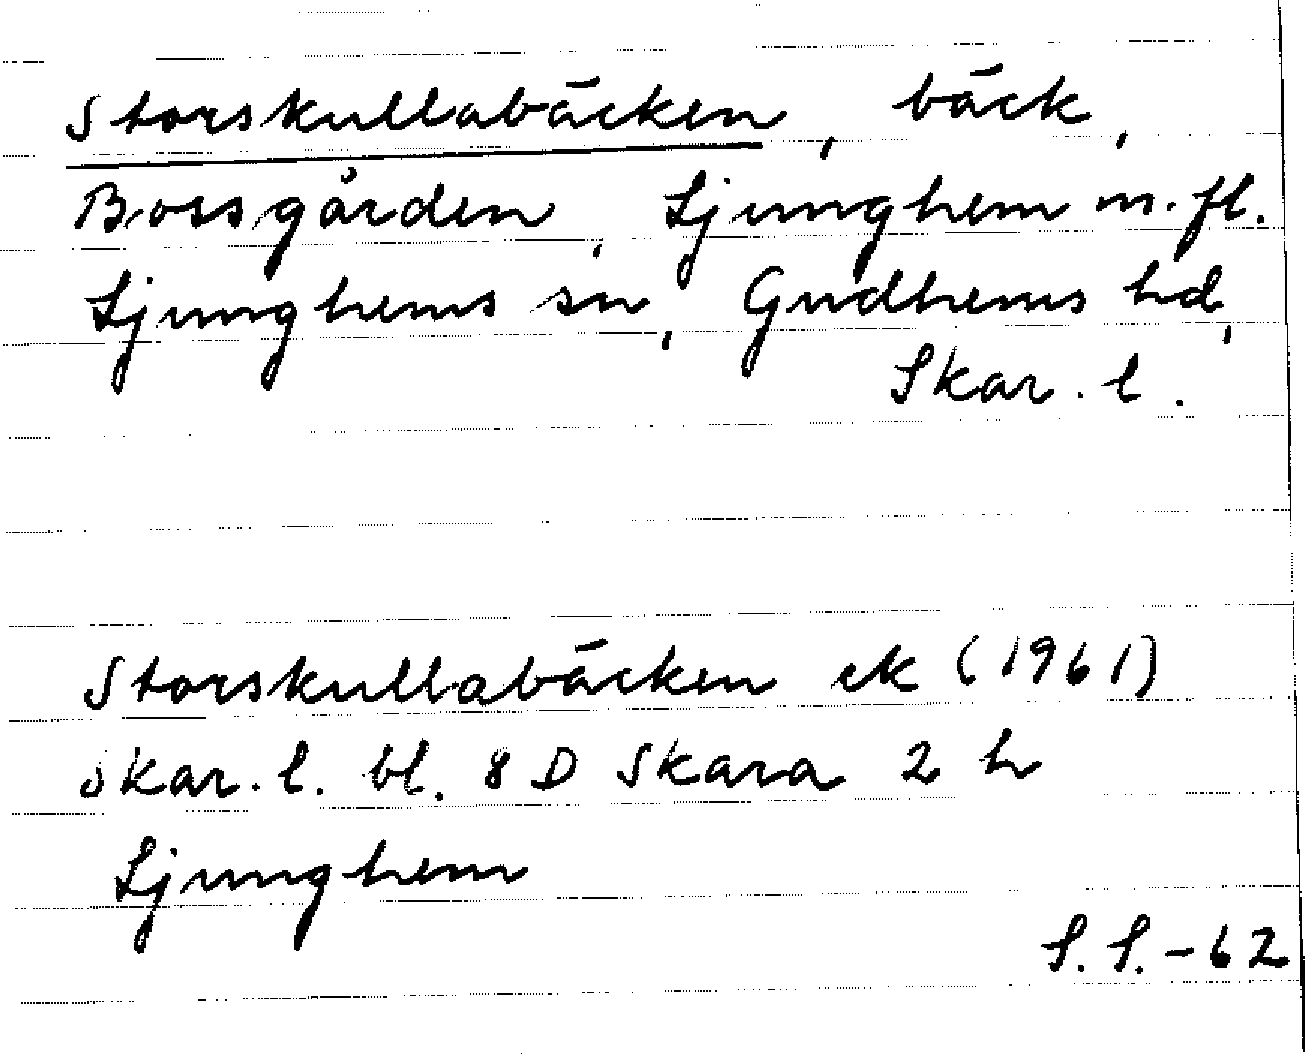 Storskullabäcken, bäck,
Bossgården, Ljunghem m.fl.
Ljunghems sn, Gudhems hd,
Skar. l.
Storskullabäcken ek (1961)
Skar. l. bl. 8 D Skara 2 h
Ljunghem
S. S. - 62